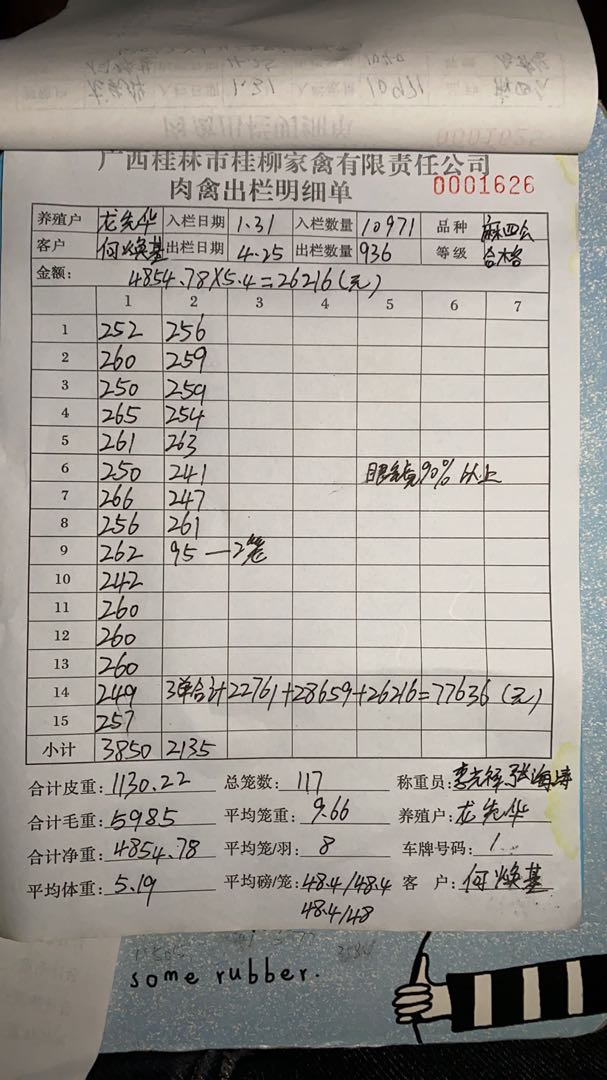 广西桂林市桂柳家禽有限责任公司
肉禽出栏明细单 0001626
养殖户 龙先华 入栏日期 1.31 入栏数量 10971 品种 麻四公
客户 何焕基 出栏日期 4.25 出栏数量 936 等级 合格
金额: 4854.78×5.4=26216(元)
1 2 3 4 5 6 7
1 252 256
2 260 259
3 250 259
4 265 254
5 261 263
6 250 241 眼镜90%以上
7 266 247
8 256 261
9 262 95—2笼
10 242
11 260
12 260
13 260
14 249 3单合计22761+28659+26216=77636(元)
15 257
小计 3850 2135
合计皮重: 1130.22 总笼数: 117 称重员: 张海涛
合计毛重: 5985 平均笼重: 9.66 养殖户: 龙先华
合计净重: 4854.78 平均笼/羽: 8 车牌号码:
平均体重: 5.19 平均磅/笼: 48.4/48.4 客户: 何焕基
48.4/48
some rubber.